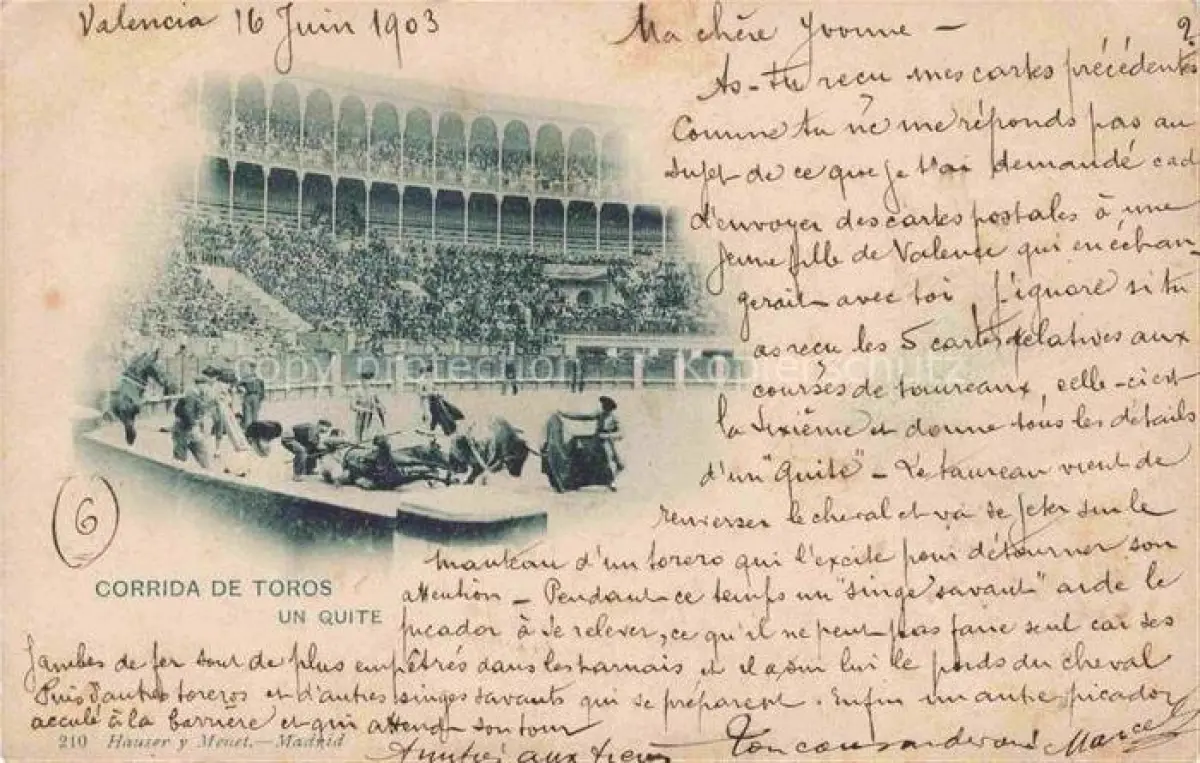 Valencia 16 Juin 1903
Ma chère Yvonne –
2
As-tu reçu mes cartes précédentes
Comme tu ne me réponds pas au
sujet de ce que je t'ai demandé cad
d'envoyer des cartes postales à une
jeune fille de Valence qui en échan-
gerait avec toi, j'ignore si tu
as reçu les 5 cartes relatives aux
courses de taureaux, celle-ci est
la sixième et donne tous les détails
d'un "Quite" – Le taureau vient de
renverser le cheval et va se jeter sur le
manteau d'un torero qui l'excite pour détourner son
attention – Pendant ce temps un "singe savant" aide le
picador à se relever, ce qu'il ne peut pas faire seul car ses
jambes de fer sont de plus empêtrés dans les harnais et il a sur lui le poids du cheval
Puis d'autres toreros et d'autres singes savants qui se préparent. Enfin un autre picador
acculé à la barrière et qui attend son tour
Amitiés aux tiens
Ton cousin dévoué Marcel
6
CORRIDA DE TOROS
UN QUITE
210 Hauser y Menet.—Madrid
copy protection Kopierschutz